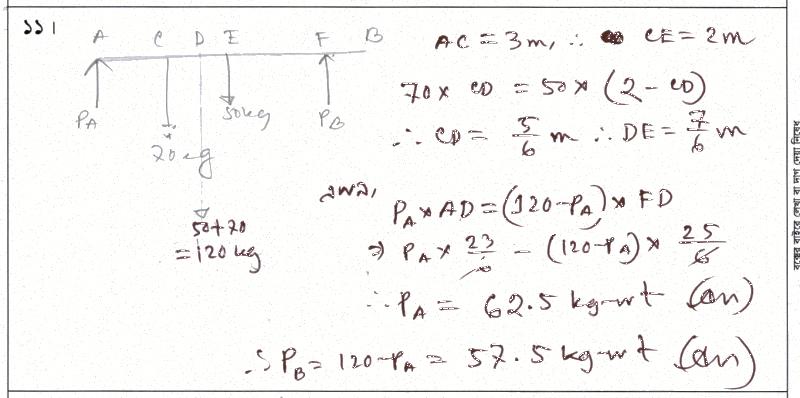 ১১।
A C D E F B
P_A 70 kg 50kg P_B
50+70
= 120 kg
AC = 3m, ∴ CE = 2m
70 × CD = 50 × (2 - CD)
∴ CD = 5/6 m ∴ DE = 7/6 m
এখন,
P_A × AD = (120 - P_A) × FD
⇒ P_A × 23/6 = (120 - P_A) × 25/6
∴ P_A = 62.5 kg-wt (Ans)
∴ P_B = 120 - P_A = 57.5 kg-wt (Ans)
বক্সের বাইরে লেখা বা দাগ দেয়া নিষেধ